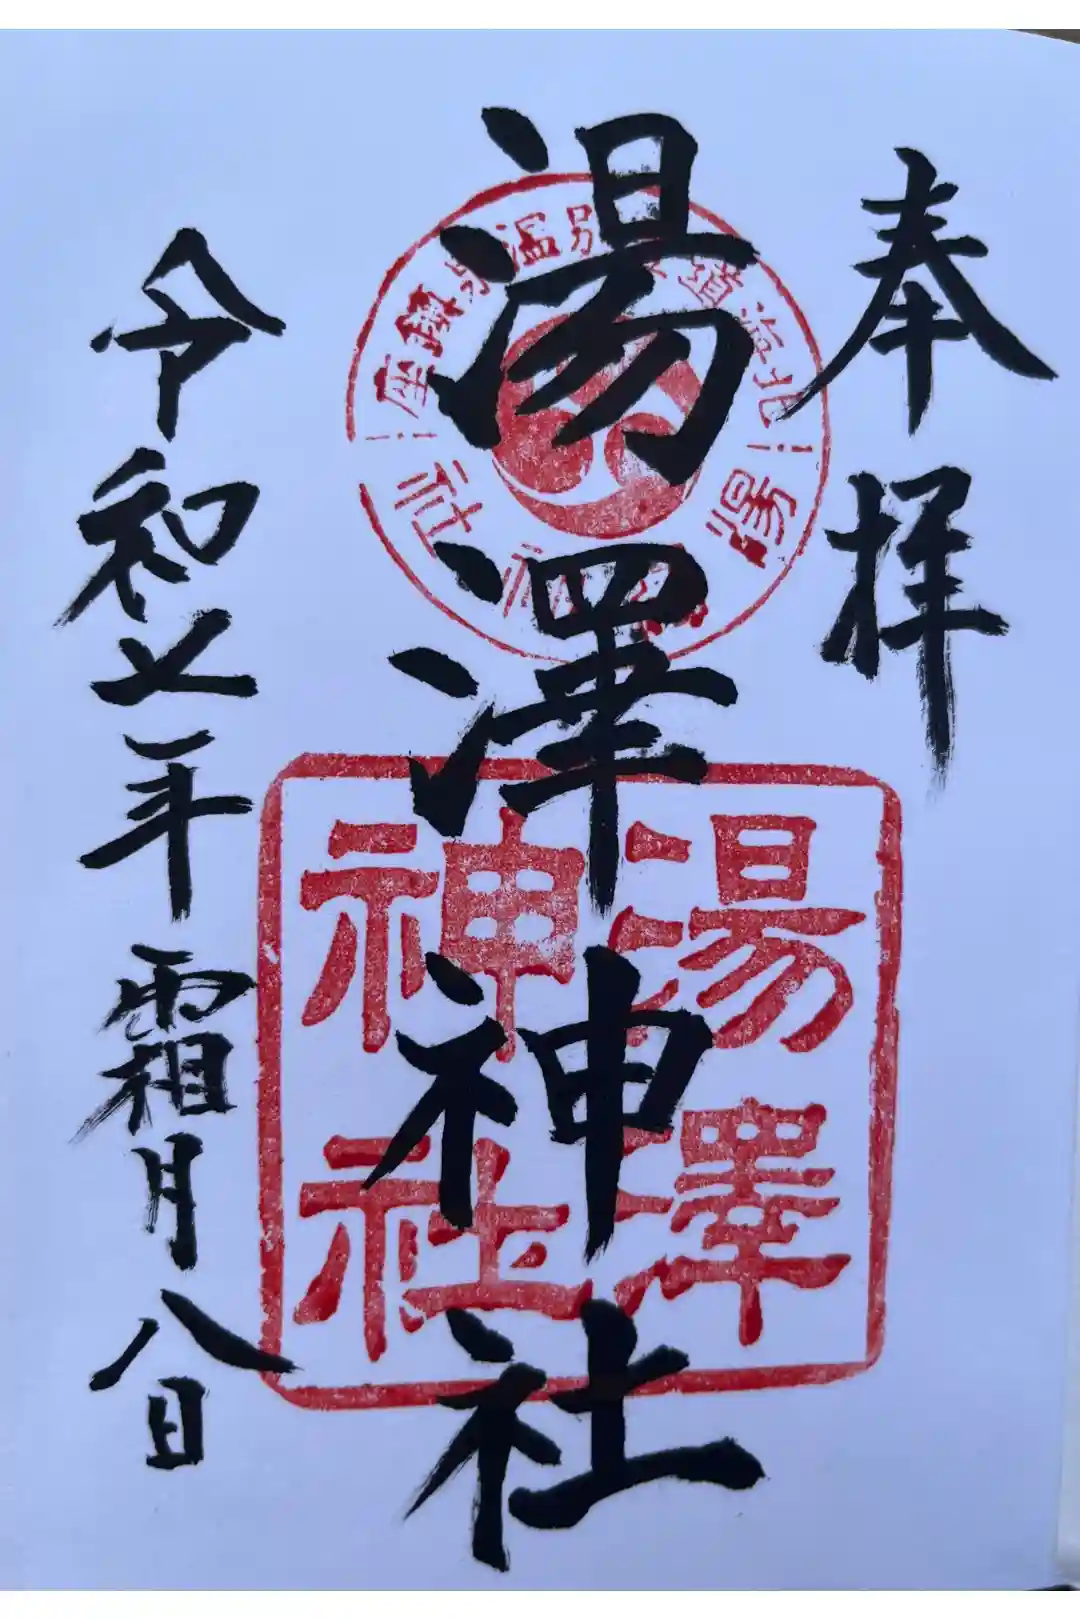 奉拝
湯澤神社
令和七年霜月八日
北海道登別温泉鎮座
湯澤神社
湯澤
神社